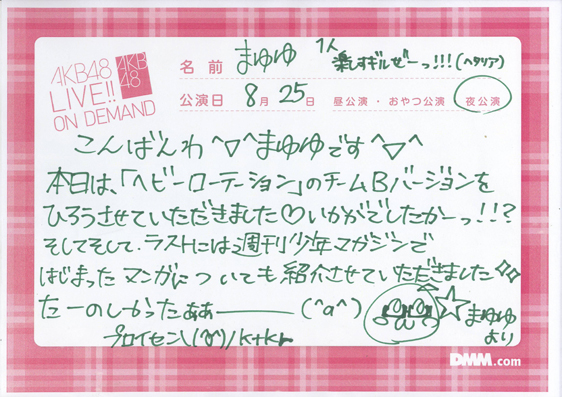 AKB48
LIVE!!
ON DEMAND
AKB
48
名前 まゆゆ 1人楽しすギルぜーっ!!!(ヘタリア)
公演日 8月25日 昼公演・おやつ公演 夜公演
こんばんわ ^▽^まゆゆです ^▽^
本日は、「ヘビーローテーション」のチームBバージョンを
ひろうさせていただきました♡いかがでしたかーっ!!?
そしてそして、ラストには週刊少年マガジンで
はじまったマンガについても紹介させていただきました
たーのしかったぁぁ――― (^a^) ☆まゆゆ
より
プロイセン\(^▽^)/
DMM.com